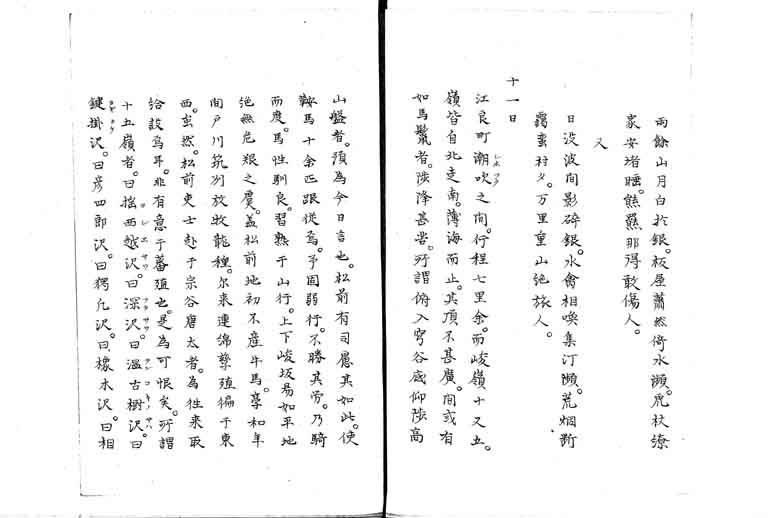 雨餘山月白於銀。板屋蕭然倚水瀕。虎杖繚
家安堵睡。熊羆那得敢傷人。
又
日没波間影碎銀。水禽相喚集汀瀕。荒烟斷
靄蛮村夕。万里重山絶旅人。
十一日
江良町潮吹之間。行程七里余。而峻嶺十又五。
シホフキ
嶺皆自北走南。薄海而止。其頂不甚廣。間或有
如馬鬣者。陟降甚苦。所謂俯入穹谷底仰陟高
山盤者。預為今日言也。松前有司慮其如此。使
鞍馬十余匹跟従焉。予固弱行。不勝其労。乃騎
而度。馬性馴良。習熟于山行。上下峻坂易如平地
絶無危艱之虞。蓋松前地初不産牛馬。享和年
間戸川筑州放牧龍種。尔来連綿孳殖徧于東
西。雖然。松前吏士赴于宗谷唐太者。為往来取
給設焉耳。非有意于蕃殖也。是為可恨矣。所謂
十五嶺者。曰揺西越沢。曰深沢。曰温古樹沢。曰
鍵掛沢。曰彦四郎沢。曰獨九沢。曰橡木沢。曰相